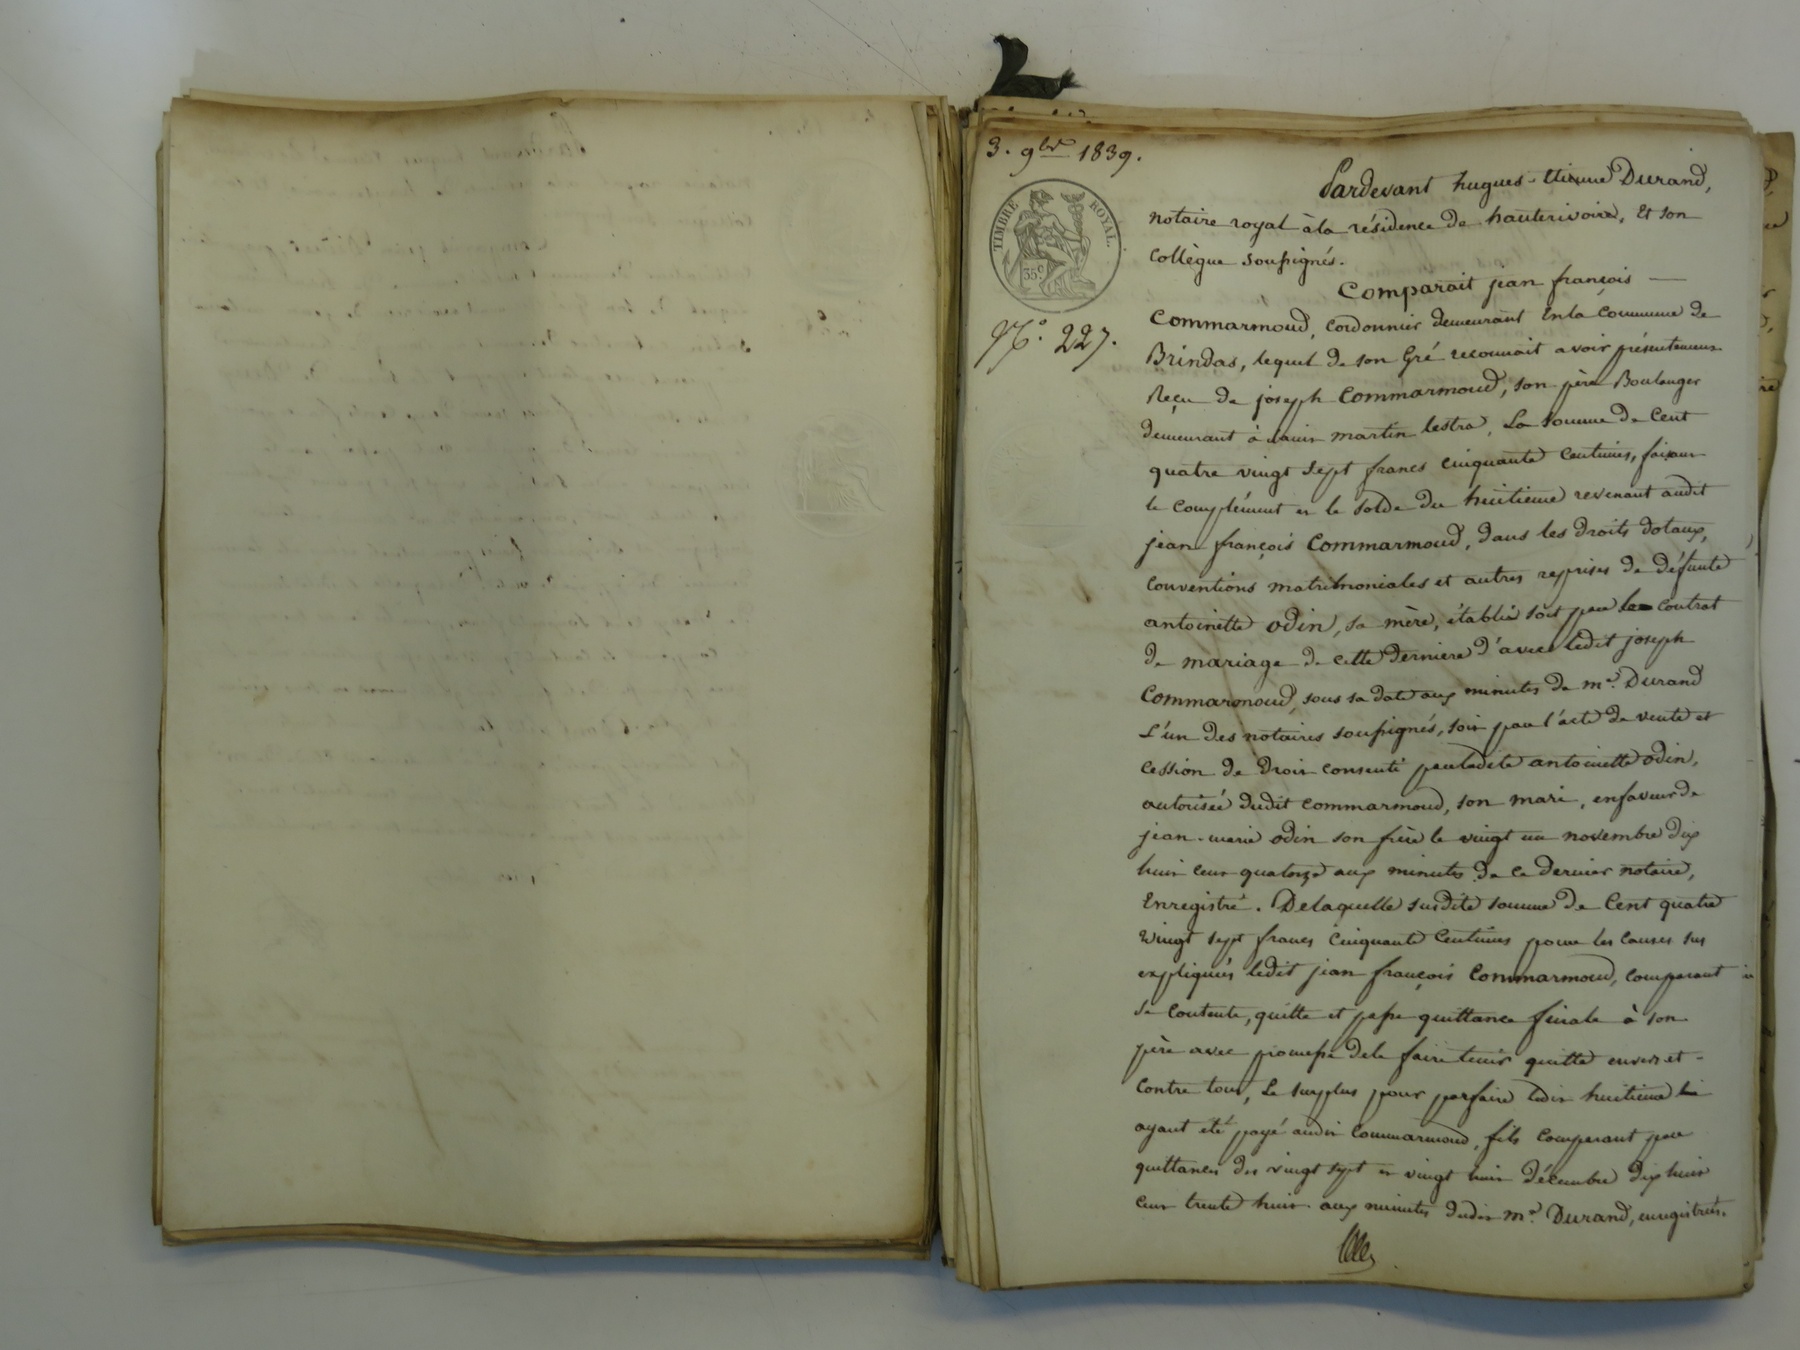 3. 9bre 1839.
TIMBRE ROYAL.
35c.
No. 227.
Pardevant hugues-Etienne Durand,
notaire royal à la résidence de hauterivoire, Et son
Collègue soussignés.
Comparait jean françois —
Commarmond, Cordonnier demeurant En la Commune de
Brindas, lequel de son Gré reconnait avoir présentement
Reçu de joseph Commarmond, son père Boulanger
demeurant à saint martin lestra, La Somme de Cent
quatre vingt sept francs cinquante Centimes, faisant
le Complément et le solde du huitieme revenant audit
jean françois Commarmond, dans les droits dotaux,
Conventions matrimoniales et autres reprises de défunte
antoinette odin, sa mère, établis soit par le Contrat
de mariage de cette derniere d'avec ledit joseph
Commarmond, sous sa date aux minutes de me. Durand
L'un des notaires soussignés, soit par l'acte de vente et
Cession de Droit consenti par ladite antoinette odin,
autorisée dudit Commarmond, son mari, en faveur de
jean-marie odin son frère le vingt un novembre dix
huit cent quatorze aux minutes de ce dernier notaire,
Enregistré. De laquelle susdite somme de Cent quatre
vingt sept francs Cinquante Centimes pour les causes sus
expliquées ledit jean françois Commarmond, comparant
se Contente, quitte et passe quittance finale à son
père avec promesse de le faire tenir quitte envers et -
Contre tous, Le surplus pour parfaire ledit huitieme lui
ayant été payé audit Commarmond, fils Comparant par
quittances des vingt sept et vingt huit décembre dix huit
cent trente huit aux minutes dudit me. Durand, enregistrées.